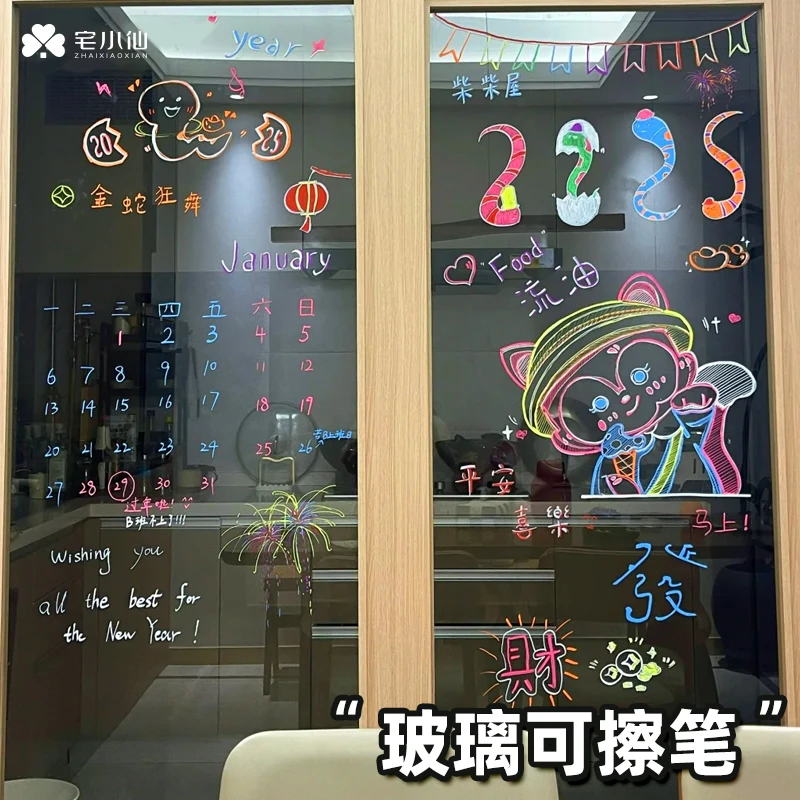 宅小仙
ZHAIXIAOXIAN
year
20 25
金蛇狂舞
January
一 二 三 四 五 六 日
1 2 3 4 5
6 7 8 9 10 11 12
13 14 15 16 17 18 19
20 21 22 23 24 25 26
27 28 29 30 31
过年啦!
B班不上了!!!
Wishing you
all the best for
the New Year!
柴柴屋
2025
"Food"
流油
平安
喜樂
马上!
發
財
"玻璃可擦笔"